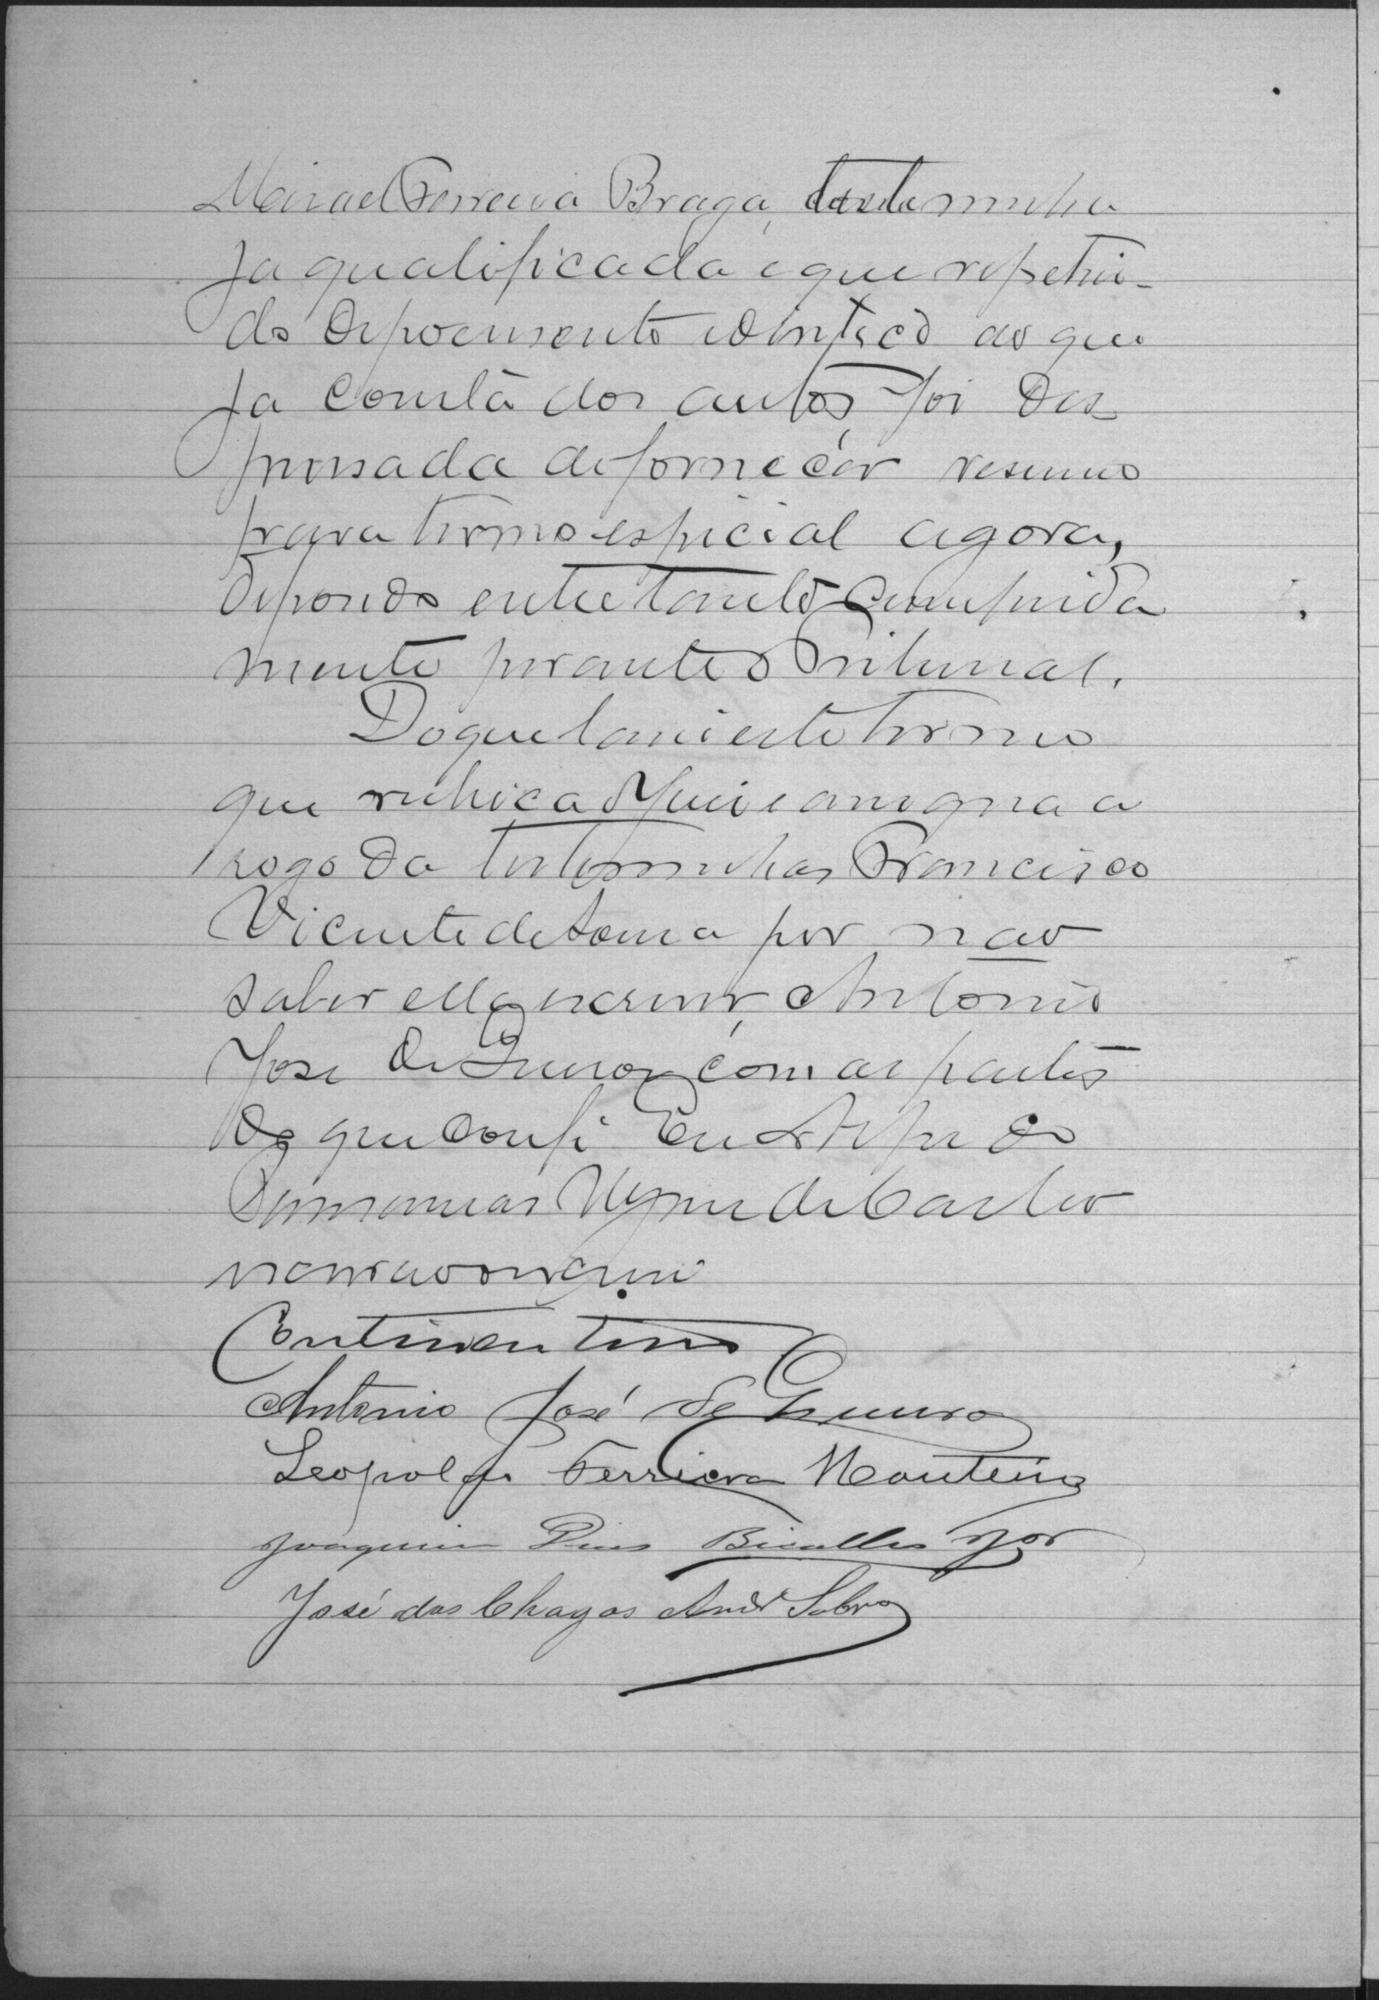 Manoel Ferreira Braga, testemunha
ja qualificada e que repetin-
do depoimento identico ao que
ja consta dos autos foi dis
pensada de fornecer resumo
para termo especial agora,
depondo entretanto cumprida
mente perante o Tribunal.
Do que lavrei este termo
que rubrica o Juiz e assigna a
rogo da testemunhas Francisco
Vicente de Souza por não
saber ella escrever, Antonio
José de com as partes
do que dou fé Eu
de Castro
escrivão escrevi
Antonio José de
Leopoldo Ferreira Monteiro
Joaquim Pius Bicalho por
José das Chagas And Sobro